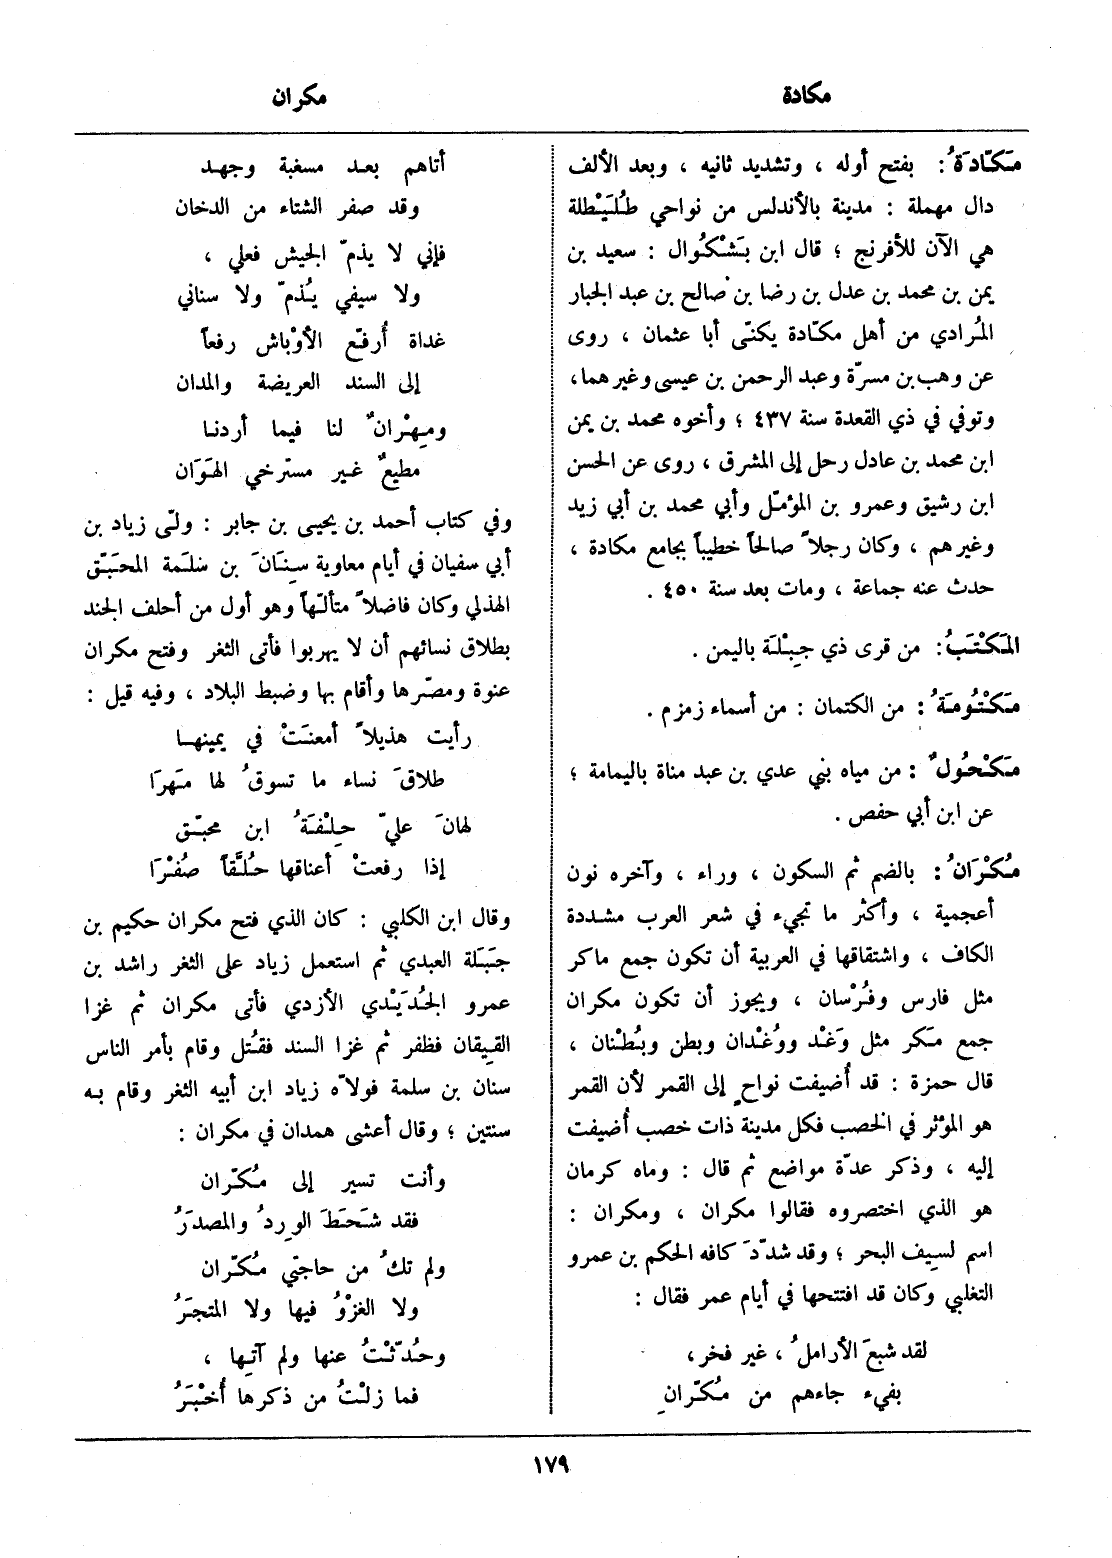 مكادة
مكران
مَكّادَةُ: بفتح أوله ، وتشديد ثانيه ، وبعد الألف
دال مهملة : مدينة بالأندلس من نواحي طُلَيْطلة
هي الآن للأفرنج ؛ قال ابن بَشْكُوال : سعيد بن
يمن بن محمد بن عدل بن رضا بن صالح بن عبد الجبار
المُرادي من أهل مكّادة يكنّى أبا عثمان ، روى
عن وهب بن مسرّة وعبد الرحمن بن عيسى وغيرهما،
وتوفي في ذي القعدة سنة ٤٣٧ ؛ وأخوه محمد بن يمن
ابن محمد بن عادل رحل إلى المشرق ، روى عن الحسن
ابن رشيق وعمرو بن المؤمّل وأبي محمد بن أبي زيد
وغيرهم ، وكان رجلاً صالحاً خطيباً بجامع مكادة ،
حدث عنه جماعة ، ومات بعد سنة ٤٥٠ .
المَكْتَبُ: من قرى ذي جِبْلَة باليمن .
مَكْتُومَةُ : من الكتمان : من أسماء زمزم .
مَكْحُولٌ : من مياه بني عدي بن عبد مناة باليمامة ؛
عن ابن أبي حفص .
مُكْرَانُ : بالضم ثم السكون ، وراء ، وآخره نون
أعجمية ، وأكثر ما تجيء في شعر العرب مشددة
الكاف ، واشتقاقها في العربية أن تكون جمع ماكر
مثل فارس وفُرْسان ، ويجوز أن تكون مكران
جمع مَكر مثل وَغْد ووُغْدان وبطن وبُطْنان ،
قال حمزة : قد أُضيفت نواحٍ إلى القمر لأن القمر
هو المؤثر في الخصب فكل مدينة ذات خصب أُضيفت
إليه ، وذكر عدّة مواضع ثم قال : وماه كرمان
هو الذي اختصروه فقالوا مكران ، ومكران :
اسم لسِيف البحر ؛ وقد شدّدَ كافه الحكم بن عمرو
التغلبي وكان قد افتتحها في أيام عمر فقال :
لقد شبعَ الأراملُ ، غير فخر ،
بفيء جاءهم من مُكّرانِ
أتاهم بعد مسغبة وجهد
وقد صفر الشتاء من الدخان
فإني لا يذمّ الجيش فعلي ،
ولا سيفي يُذمّ ولا سناني
غداة أُرفّع الأوْباش رفعاً
إلى السند العريضة والمدان
ومِهْرانٌ لنا فيما أردنا
مطيعٌ غير مسترخي الهَوَان
وفي كتاب أحمد بن يحيى بن جابر : ولّى زياد بن
أبي سفيان في أيام معاوية سِنَانَ بن سَلَمة المحَبَّق
الهذلي وكان فاضلاً متألّهاً وهو أول من أحلف الجند
بطلاق نسائهم أن لا يهربوا فأتى الثغر وفتح مكران
عنوة ومصّرها وأقام بها وضبط البلاد ، وفيه قيل :
رأيت هذيلاً أمعنَتْ في يمينها
طلاقَ نساء ما تسوقُ لها مَهرَا
لهانَ عليّ حِلْفَةُ ابن محبّق
إذا رفعتْ أعناقها حُلَّقاً صُفْرَا
وقال ابن الكلبي : كان الذي فتح مكران حكيم بن
جَبَلة العبدي ثم استعمل زياد على الثغر راشد بن
عمرو الجُدَيْدي الأزدي فأتى مكران ثم غزا
القِيقان فظفر ثم غزا السند فقُتل وقام بأمر الناس
سنان بن سلمة فولاّه زياد ابن أبيه الثغر وقام به
سنتين ؛ وقال أعشى همدان في مكران :
وأنت تسير إلى مُكّران
فقد شَحَطَ الوِردُ والمصدَرُ
ولم تكُ من حاجتي مُكّران
ولا الغزْوُ فيها ولا المتجَرُ
وحُدّثْتُ عنها ولم آتِها ،
فما زلْتُ من ذكرها أُخْبَرُ
١٧٩